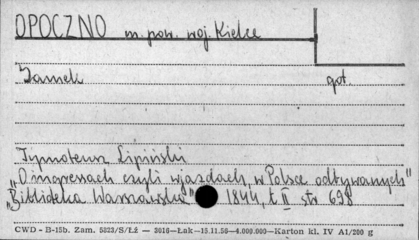 OPOCZNO m. pow. woj. Kielce
Zamek got.
Tymoteusz Lipiński
"O ingressach czyli wjazdach w Polsce odbywanych"
"Biblioteka Warszawska" 1844, t. II str 698
CWD - B-15b. Zam. 5323/S/Łż — 3016—Łak—15.11.50—4.000.000—Karton kl. IV A1/200 g